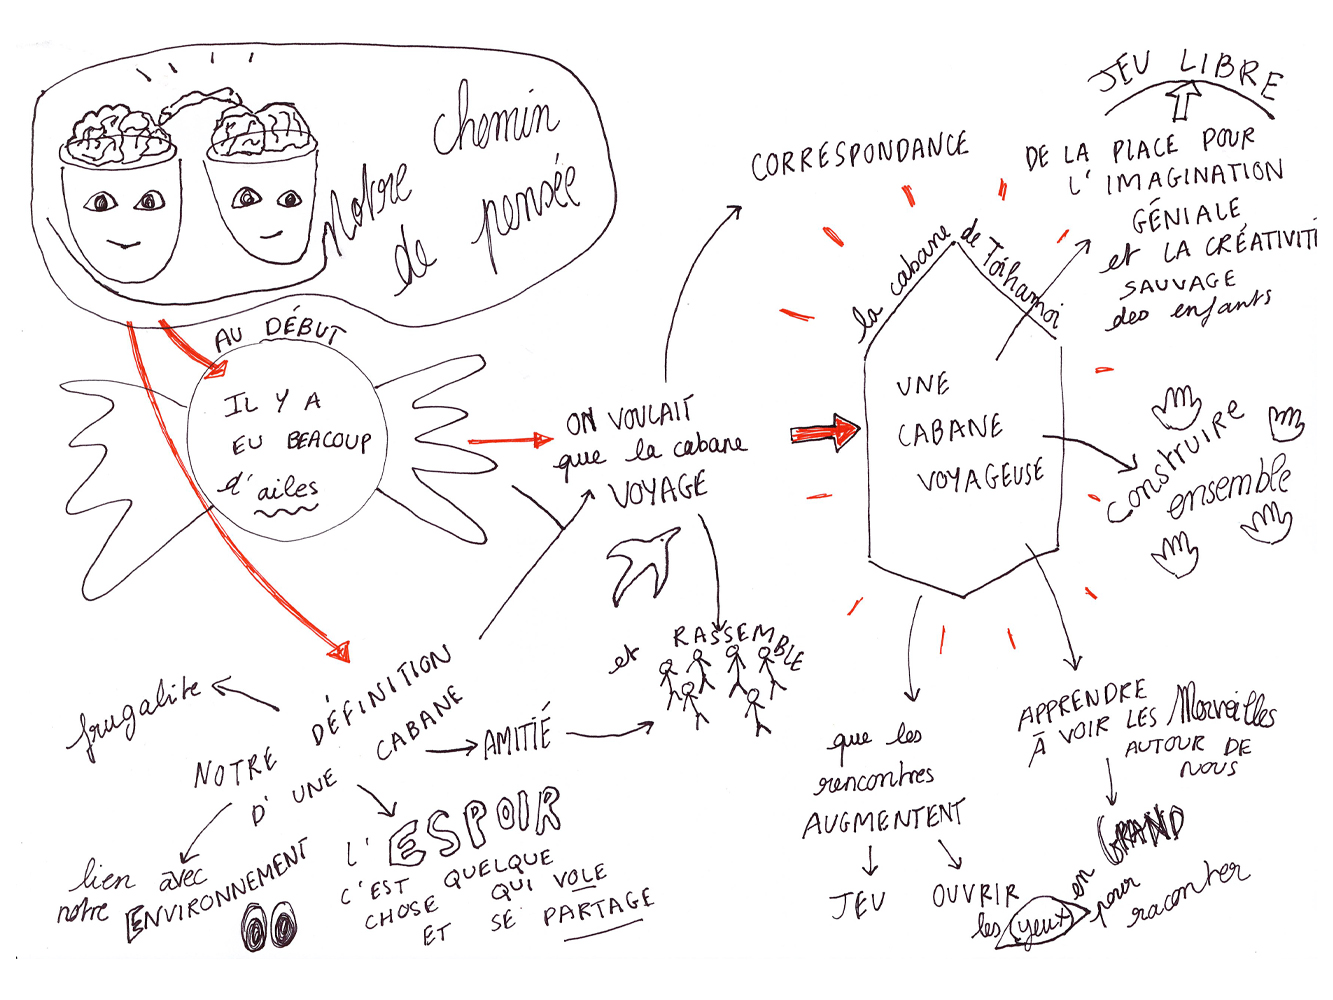 Notre chemin
de pensée
AU DÉBUT
IL Y A
EU BEACOUP
d'ailes
ON VOULAIT
que la cabane
VOYAGE
et RASSEMBLE
CORRESPONDANCE
la cabane de Toihamoi
UNE
CABANE
VOYAGEUSE
JEU LIBRE
DE LA PLACE POUR
L'IMAGINATION
GÉNIALE
et LA CRÉATIVITÉ
SAUVAGE
des enfants
construire
ensemble
APPRENDRE
À VOIR LES Merveilles
AUTOUR DE
NOUS
en GRAND
pour
raconter
que les
rencontres
AUGMENTENT
JEU
OUVRIR
les yeux
NOTRE DÉFINITION
D'UNE CABANE
frugalite
AMITIÉ
lien avec
notre ENVIRONNEMENT
L'ESPOIR
C'EST QUELQUE
CHOSE QUI VOLE
ET SE PARTAGE